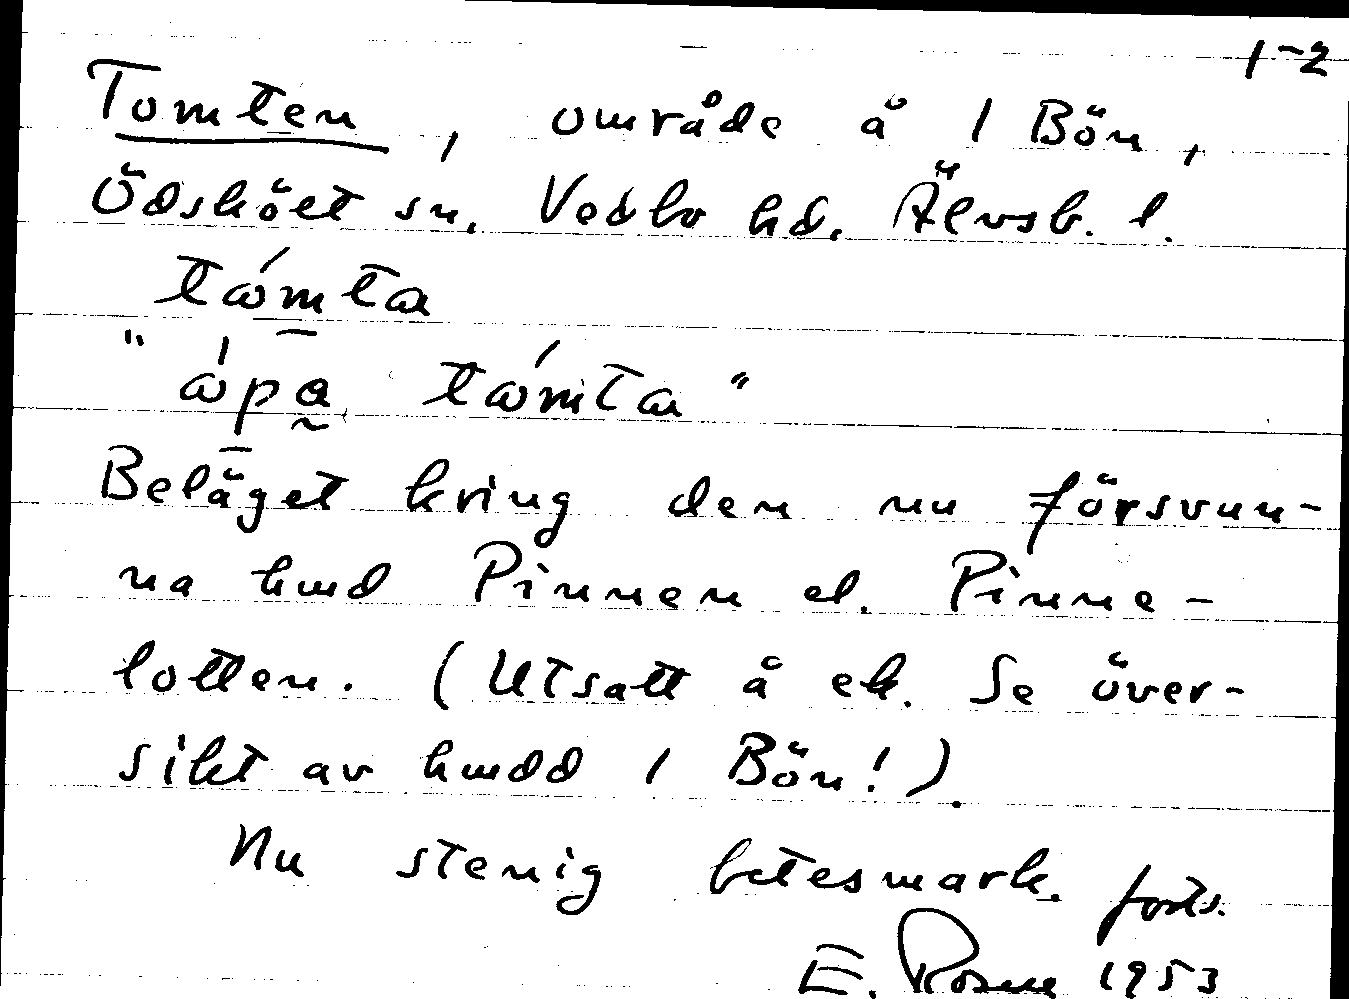 1-2
Tomten, område å 1 Bön,
Ödsköet sn. Vedbo hd. Älvsb. l.
tómta
"åpa tómta"
Beläget kring den nu försvun-
na hmd Pinnen el. Pinne-
lotten. (Utsatt å ek. Se över-
sikt av hmdd 1 Bön!).
Nu stenig betesmark. forts.
E. 1953